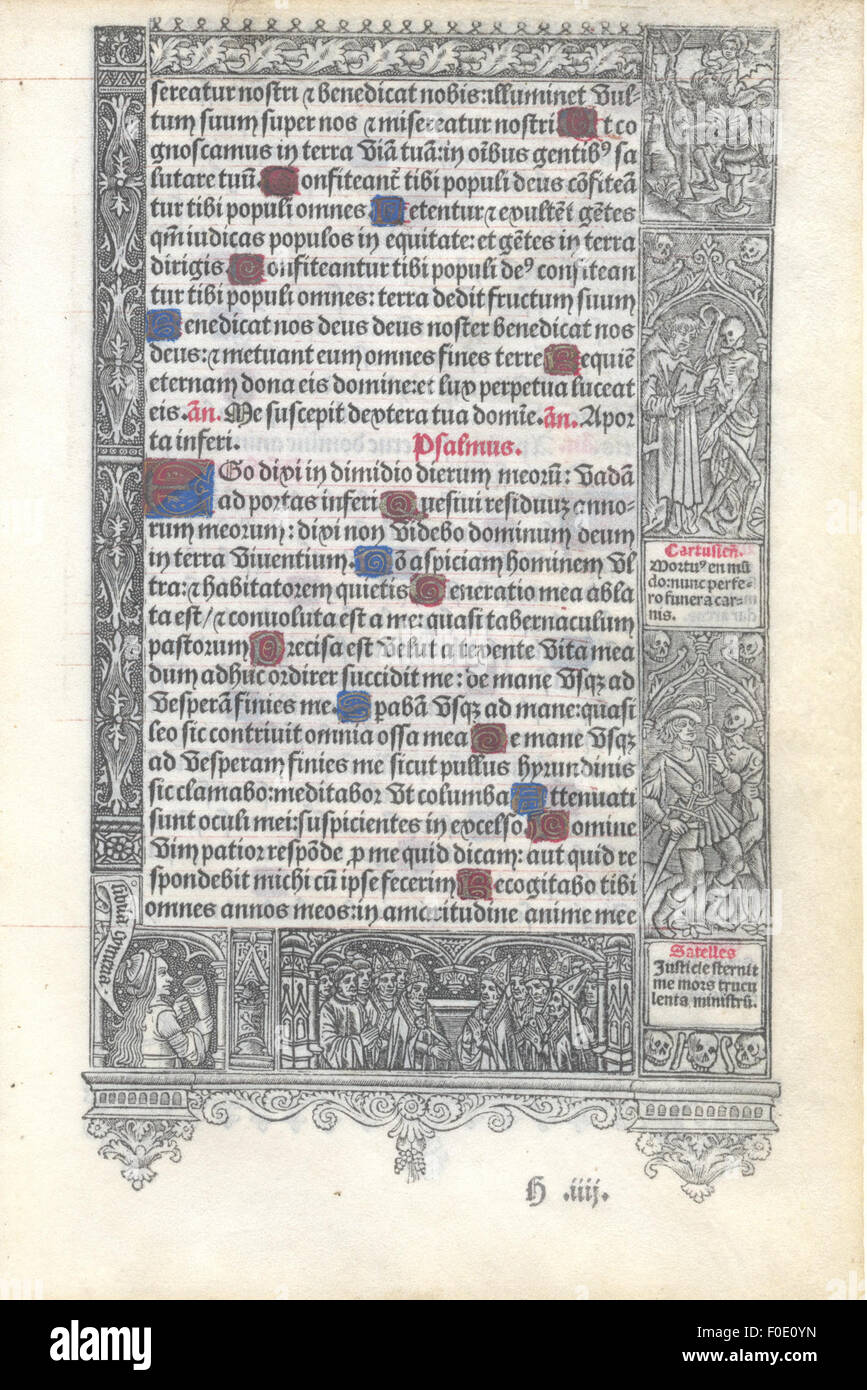 sereatur nostri ⁊ benedicat nobis: illuminet Vul-
tum suum super nos ⁊ misereatur nostri Vt co
gnoscamus in terra Viā tuā: in oībus gentibꝰ sa
lutare tuū Confiteant᷑ tibi populi deus cōfiteā
tur tibi populi omnes Letentur ⁊ exultēt gētes
qm̄ iudicas populos in equitate: et gētes in terra
dirigis Confiteantur tibi populi deꝰ confitean
tur tibi populi omnes: terra dedit fructum suum
Benedicat nos deus deus noster benedicat nos
deus: ⁊ metuant eum omnes fines terre Requiē
eternam dona eis domine: et lux perpetua luceat
eis. añ. Me suscepit dextera tua domīe. añ. A por
ta inferi. Psalmus.
EGo dixi in dimidio dierum meorū: Vadā
ad portas inferi Quesiui residuuꝫ anno-
rum meorum: dixi non Videbo dominum deum
in terra Viuentium. Nō aspiciam hominem Vl
tra: ⁊ habitatorem quietis Generatio mea abla
ta est/ ⁊ conuoluta est a me: quasi tabernaculum
pastorum Precisa est Velut a texente Vita mea
dum adhuc ordirer succidit me: de mane Vsqꝫ ad
Vesperā finies me. Sperabā Vsqꝫ ad mane: quasi
leo sic contriuit omnia ossa mea De mane Vsqꝫ
ad Vesperam finies me sicut pullus hyrundinis
sic clamabo: meditabor Vt columba Attenuati
sunt oculi mei: suspicientes in excelso Domine
Vim patior respōde ꝓ me quid dicam: aut quid re
spondebit michi cū ipse fecerim Recogitabo tibi
omnes annos meos: in amaritudine anime mee
Cartusieñ.
Mortuꝰ en mū
do: nunc perfe-
ro funera car-
nis.
Satelles
Justicie sternit
me mors trucu
lenta ministrū.
H .iiij.
alamy
Image ID: F0E0YN
www.alamy.com